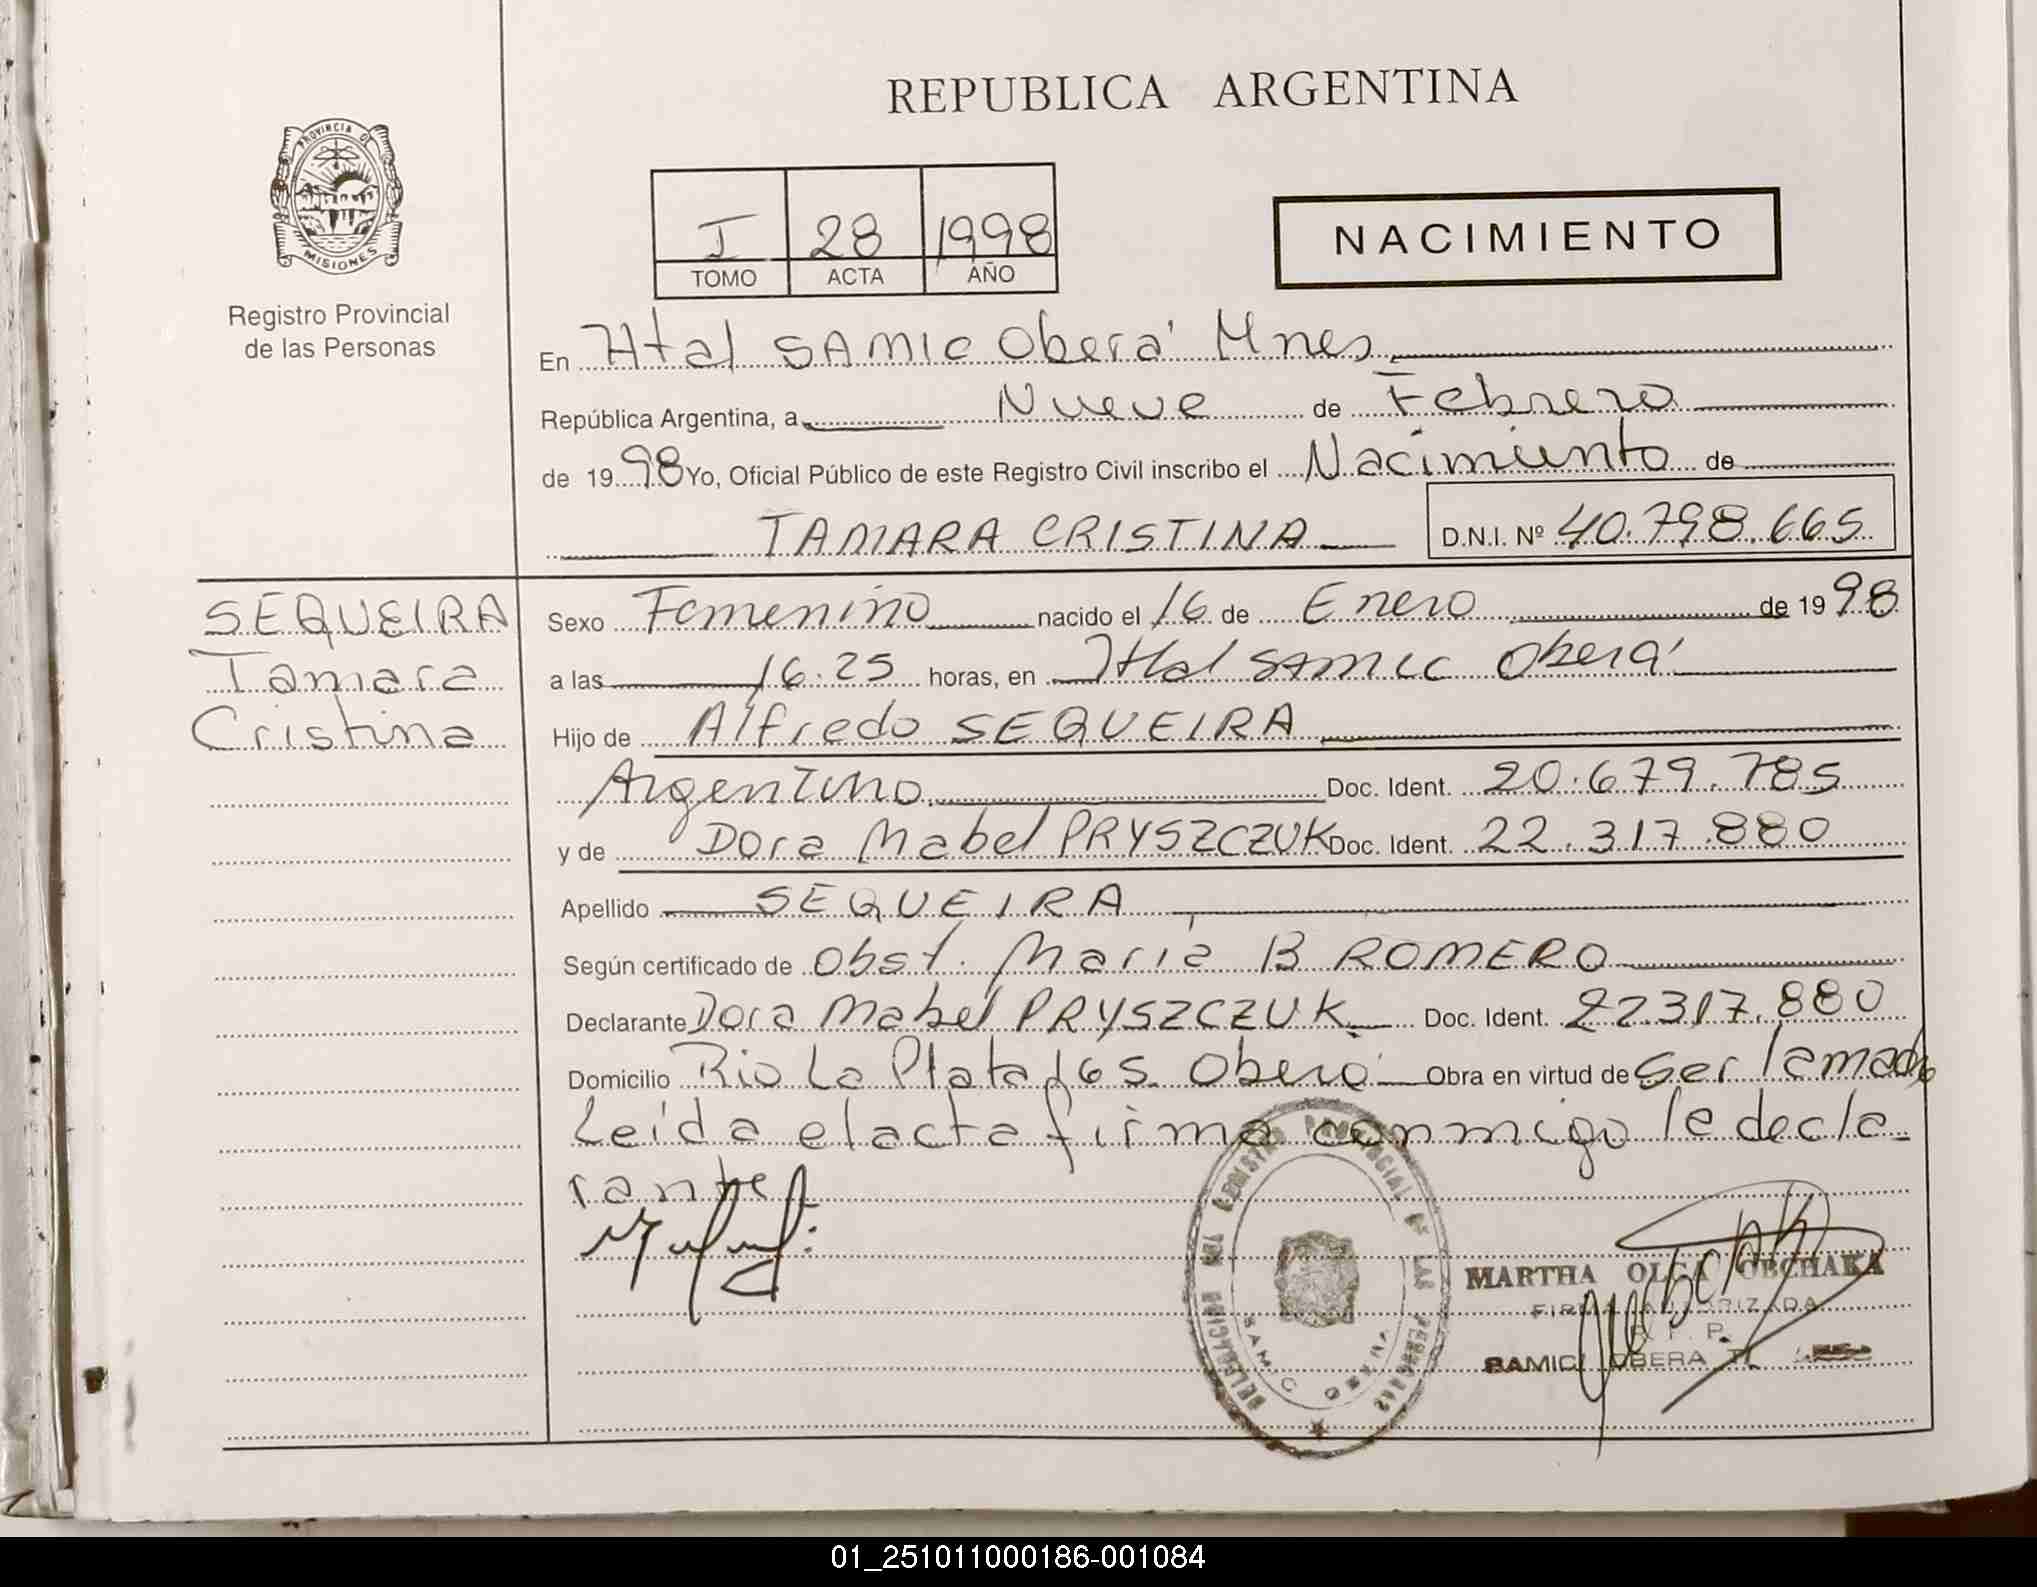 REPUBLICA ARGENTINA
PROVINCIA DE
MISIONES
Registro Provincial
de las Personas
I 28 1998
TOMO ACTA AÑO
NACIMIENTO
En Htal SAMIC Oberá Mnes
República Argentina, a Nueve de Febrero
de 1998 Yo, Oficial Público de este Registro Civil inscribo el Nacimiento de
TAMARA CRISTINA D.N.I. Nº 40.798.665
SEQUEIRA
Tamara
Cristina
Sexo Femenino nacido el 16 de Enero de 1998
a las 16.25 horas, en Htal SAMIC Oberá
Hijo de Alfredo SEQUEIRA
Argentino Doc. Ident. 20.679.785
y de Dora Mabel PRYSZCZUK Doc. Ident. 22.317.880
Apellido SEQUEIRA
Según certificado de Obst. María B ROMERO
Declarante Dora Mabel PRYSZCZUK Doc. Ident. 22.317.880
Domicilio Rio La Plata 165 Oberá Obra en virtud de ser la madre
Leída el acta firma conmigo la decla-
rante
DELEGACION DEL REGISTRO PROVINCIAL DE LAS PERSONAS
SAMIC OBERA
MARTHA OLGA OBCHAKA
FIRMA AUTORIZADA
R. P. P.
SAMIC OBERA
01_251011000186-001084